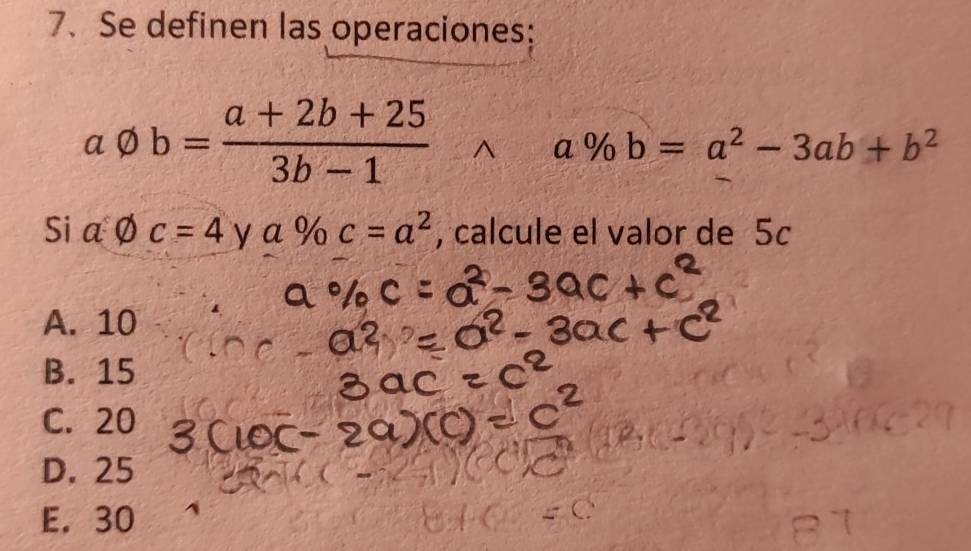 7. Se definen las operaciones:
a ∅ b = (a + 2b + 25)/(3b − 1) ∧ a % b = a² − 3ab + b²
Si a ∅ c = 4 y a % c = a², calcule el valor de 5c
a % c = a² - 3ac + c²
A. 10
a² = a² - 3ac + c²
B. 15
3ac = c²
C. 20
3(10c - 2a)(c) = c²
D. 25
E. 30
= c